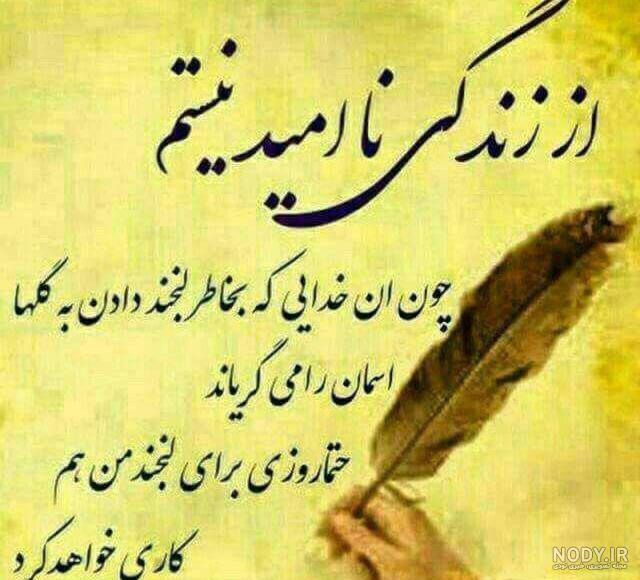 از زندگی نا امید نیستم
چون ان خدایی که بخاطر لبخند دادن به گلها
اسمان را می گریاند
حتما روزی برای لبخند من هم
کاری خواهد کرد
NODY.IR
مجله تصویری، خبری نودی